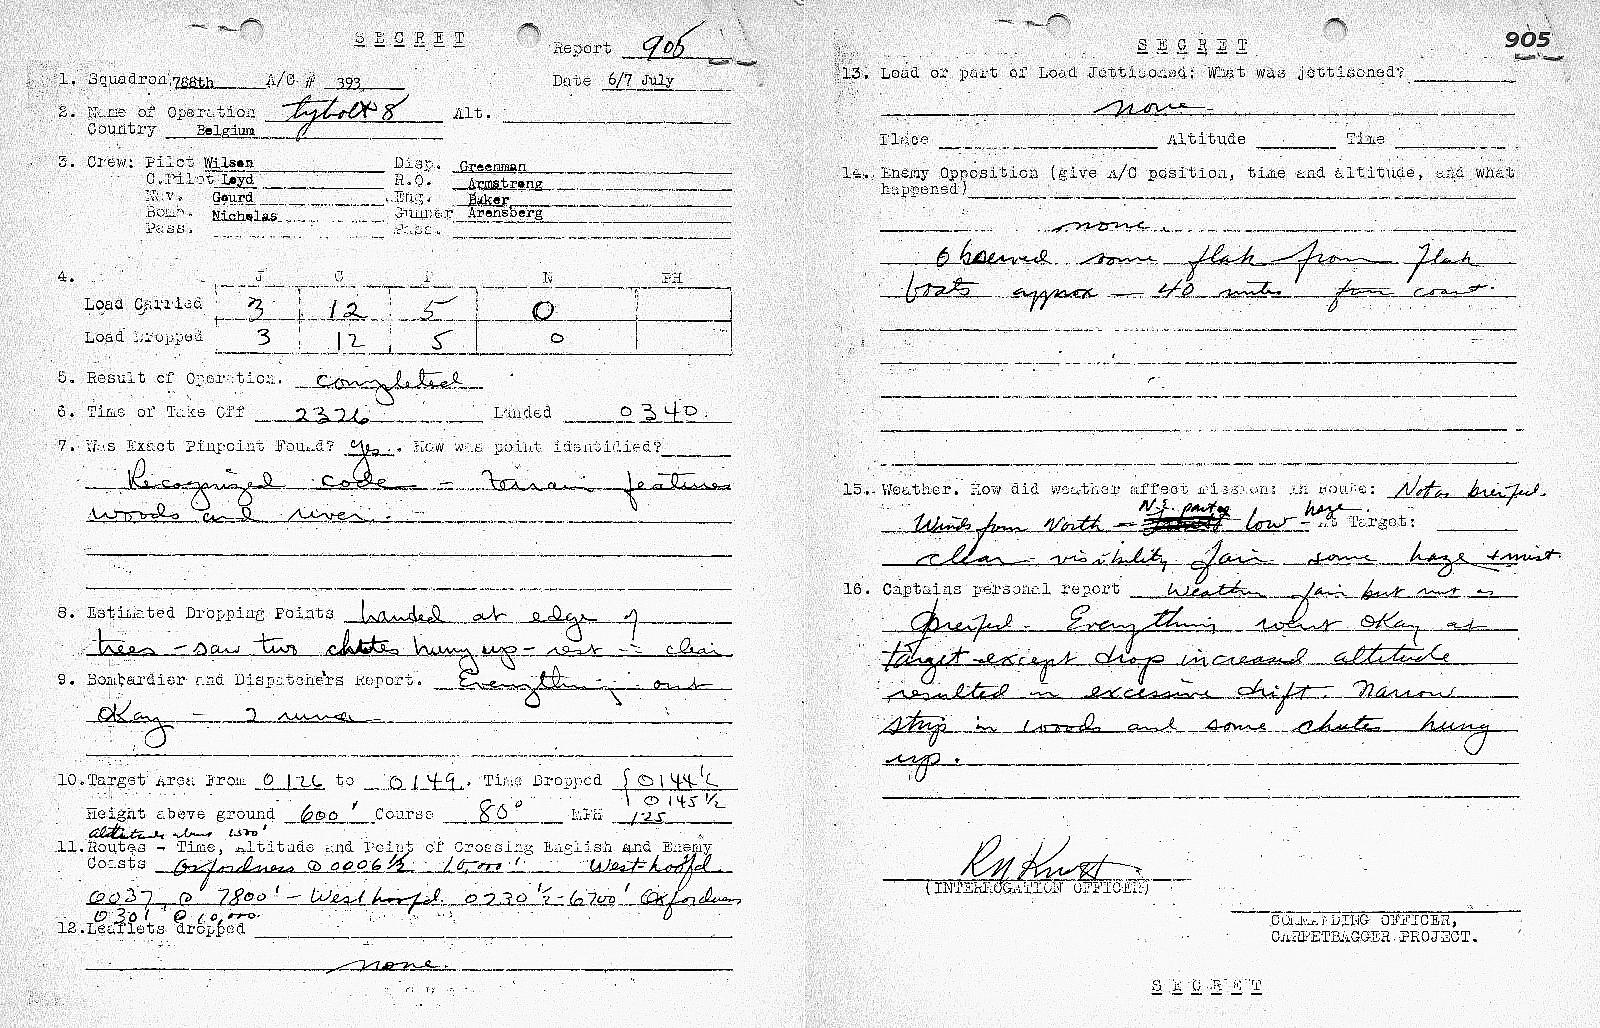 SECRET
Report 905
1. Squadron 788th A/C # 393 Date 6/7 July
2. Name of Operation tybolt 8 Alt.
Country Belgium
3. Crew: Pilot Wilson Disp. Greenman
C.Pilot Loyd R.O. Armstrong
Nav. Gourd Eng. Baker
Bomb. Nicholas Gunner Arensberg
Pass. Pass.
4. J C P N PH
Load Carried 3 12 5 0
Load Dropped 3 12 5 0
5. Result of Operation. completed
6. Time of Take Off 2326 Landed 0340.
7. Was Exact Pinpoint Found? yes. How was point identidied?
Recognized code - terrain features
woods and river.
8. Estimated Dropping Points landed at edge of
trees - saw two chutes hung up - rest in clear
9. Bombardier and Dispatcher's Report. Everything out
okay - 2 runs
10. Target Area From 0126 to 0149. Time Dropped 0144 1/2
0145 1/2
Height above ground 600' Course 80° MPH 125
altitude 1500'
11. Routes - Time, Altitude and Point of Crossing English and Enemy
Coasts Oxfordness @ 0006 1/2 10,000' West-hoofd
0037 @ 7800' - Westhoofd 0230 1/2 - 6700' Oxfordness
0301 @ 10,000.
12. Leaflets dropped
none.
SECRET
905
13. Load or part of Load Jettisoned: What was jettisoned?
none.
Place Altitude Time
14. Enemy Opposition (give A/C position, time and altitude, and what
happened)
none.
Observed some flak from flak
boats approx - 40 miles from coast.
15. Weather. How did weather affect mission: En Route: Not as breifed.
Winds from North - N.E. partly low - haze At Target:
clear - visibility fair some haze + mist.
16. Captains personal report Weather fair but not as
breifed. Everything went okay at
target except drop increased altitude
resulted in excessive drift. Narrow
strip in woods and some chutes hung
up.
(INTERROGATION OFFICER)
COMMANDING OFFICER,
CARPETBAGGER PROJECT.
SECRET